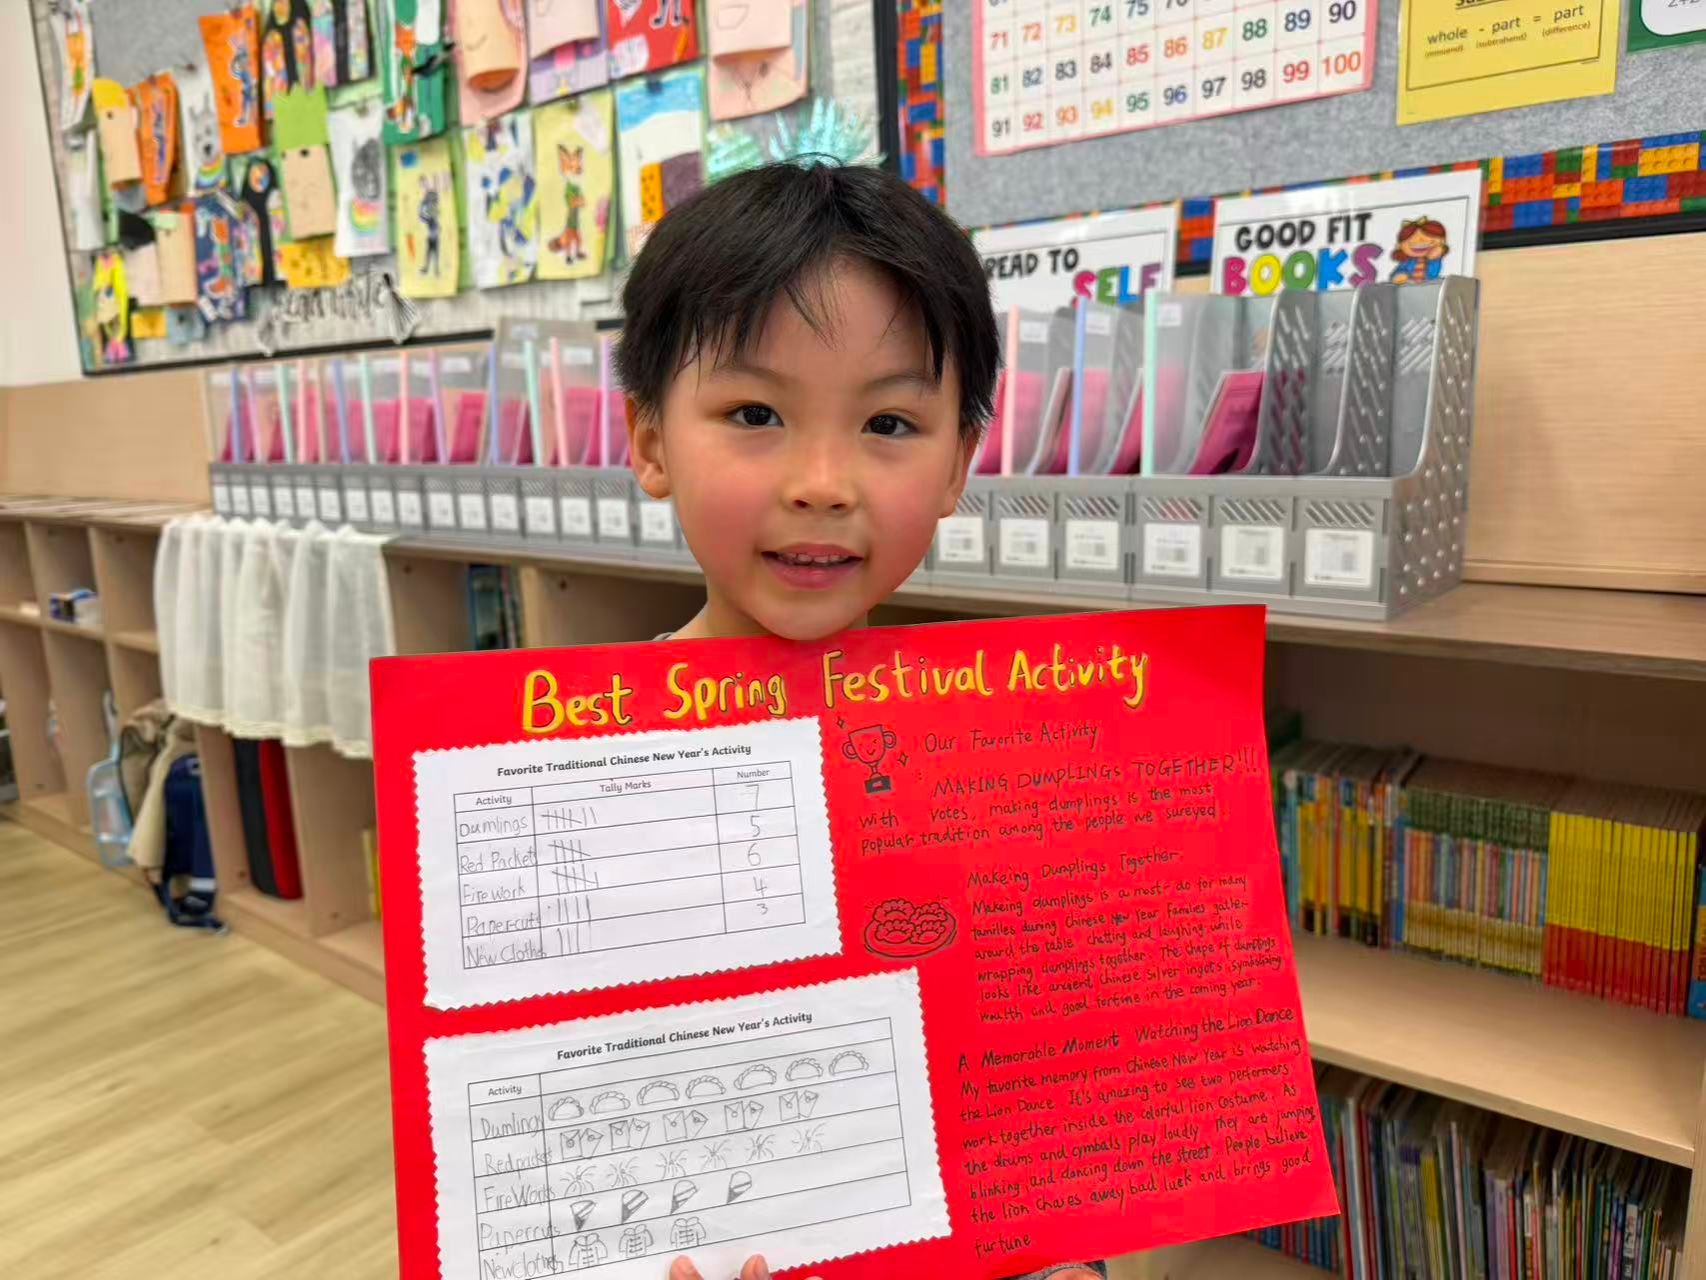 71 72 73 74 75 76 87 88 89 90
81 82 83 84 85 86 87 88 89 90
91 92 93 94 95 96 97 98 99 100
whole - part = part
(minuend) (subtrahend) (difference)
READ TO
SELF
GOOD FIT
BOOKS
Best Spring Festival Activity
Favorite Traditional Chinese New Year's Activity
Activity Tally Marks Number
Dumlings 7
Red Packet 5
Firework 6
Paper-cuts 4
New Clothes 3
Favorite Traditional Chinese New Year's Activity
Activity
Dumlings
Redpacket
FireWorks
Papercuts
Newclothes
Our Favorite Activity
MAKING DUMPLINGS TOGETHER!!!
with votes, making dumplings is the most
popular tradition among the people we sureyed.
Makeing Dumplings Together.
Makeing dumplings is a most-do for many
families during Chinese New Year Families gather
around the table chatting and laughing while
wrapping dumplings together. The shape of dumplings
looks like ancient Chinese silver ingots, symbolizing
wealth and good fortune in the coming year.
A Memorable Moment Watching the Lion Dance
My favorite memory from Chinese New Year is watching
the Lion Dance. It's amazing to see two performers
work together inside the colorful lion costume. As
the drums and cymbals play loudly They are jumping
blinking, and dancing down the street. People believe
the lion chaves away bad luck and brings good
furtune